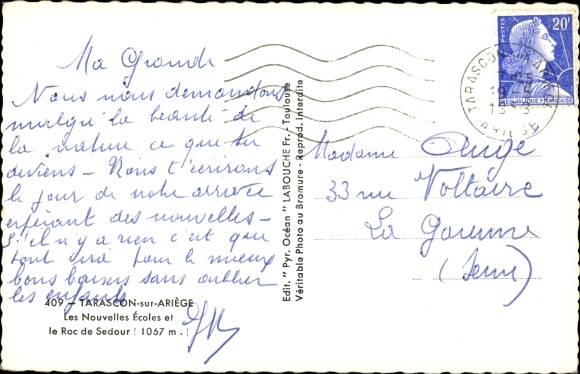 Ma Grande
Nous nous demandons
malgré la beauté de
la nature ce que tu
deviens - Nous t'écrirons
le jour de notre arrivée
espérant des nouvelles -
S'il n'y a rien c'est que
tout sera pour le mieux
bons baisers sans oublier
les enfants
409 - TARASCON-sur-ARIÈGE
Les Nouvelles Écoles et
le Roc de Sedour (1067 m.)
Edit. "Pyr. Océan" LABOUCHE Fr. - Toulouse
Véritable Photo au Bromure - Reprod. Interdite
POSTES
20F
TARASCON
ARIEGE
Madame Ange
33 rue Voltaire
La Garenne
(Seine)